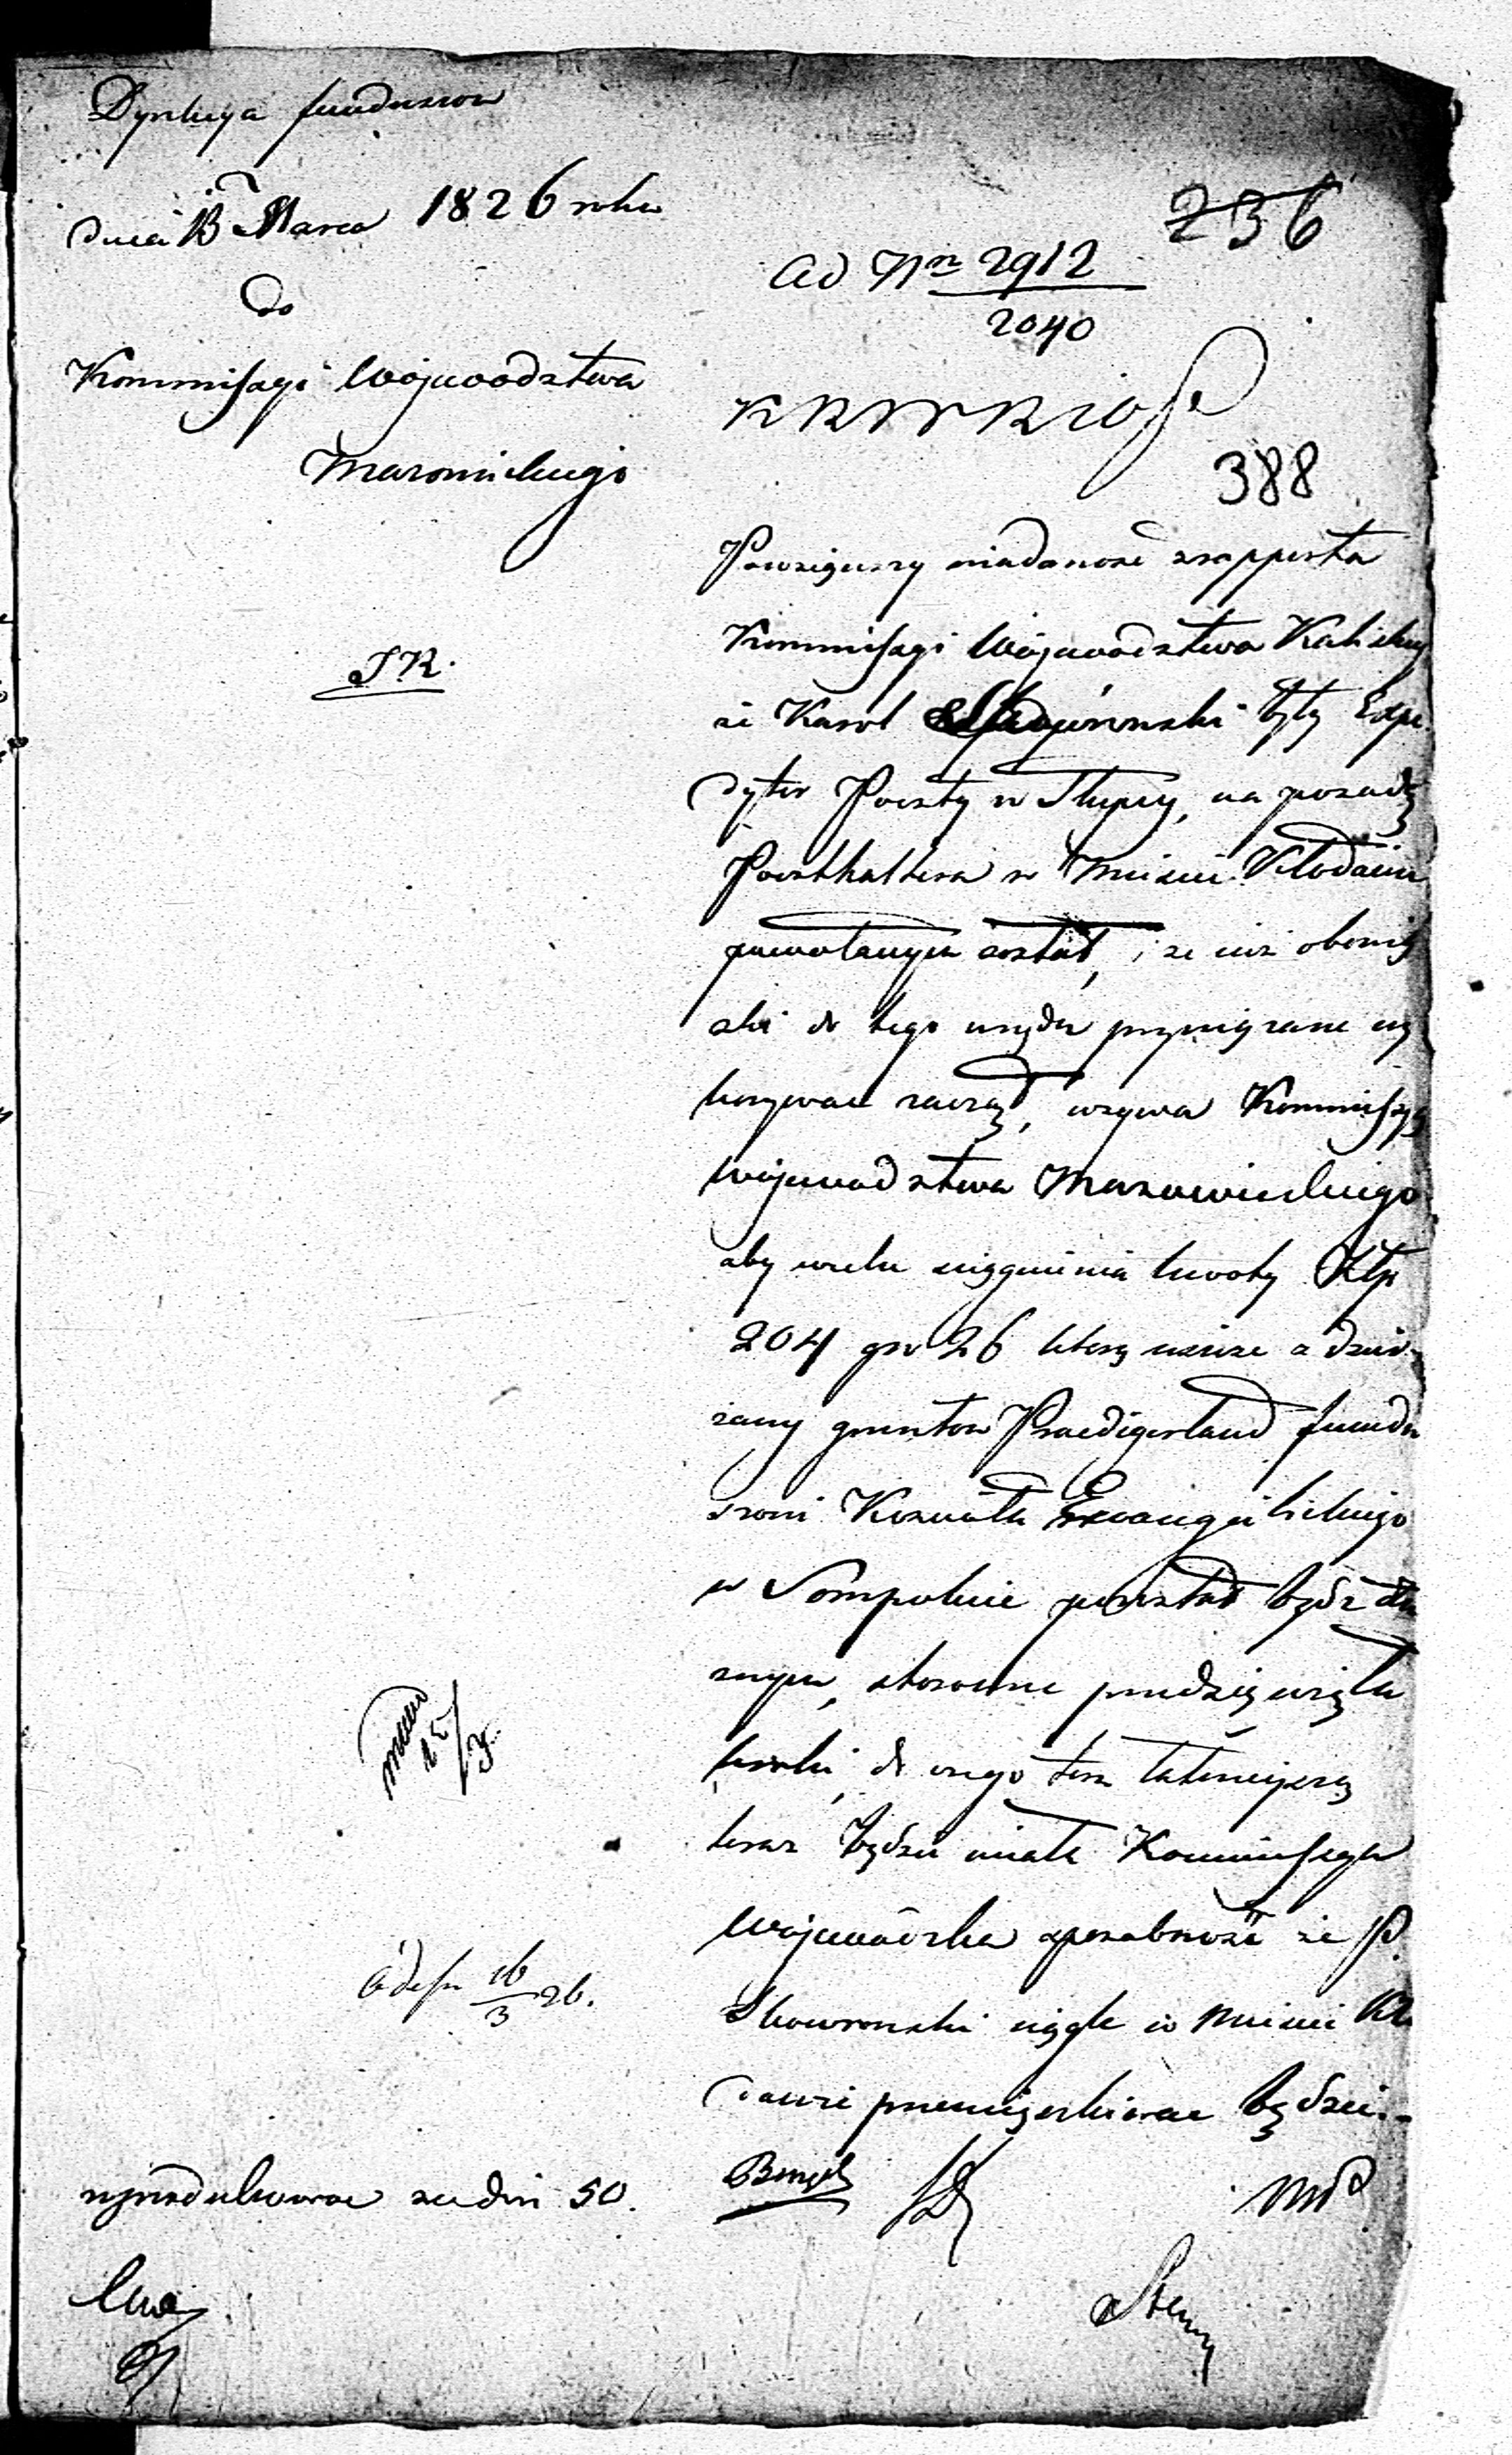 Dyrekcya funduszow
dnia 13 Marca 1826 roku
do
Kommissyi Woiewodztwa
Mazowieckiego
236
ad Nrn 2912
2040
KRWRiOP
388
Powziąwszy wiadomość z rapportu
Kommissyi Woiewodztwa Kaliskieg
że Karol Skowronski były Expe
dytor Poczty w Słupcy, na posadę
Poczthaltera w Mieście Kłodawie
powołanym został, i że iuż obowią
zki do tego urzędu przywiązane wy
konywać zaczął, wzywa Kommissyę
Woiewodztwa Mazowieckiego
aby wcelu ściągnienia kwoty Złp
204 gr 26 którą ieszcze z dzier
żawy gruntow Praedigerland fundu
szowi Kościoła Ewangelickiego
w Sompolnie pozostał bydź dłu
żnym, stosowne przedsięwzięła
kroki, do czego tem łatwieyszą
teraz będzie miała Kommissya
Woiewódzka sposobność że P.
Skowronski ciągle w Mieście Kło
dawie przemieszkiwać będzie.
SK.
15/3
16/3 26.
reprodukować za dni 50.